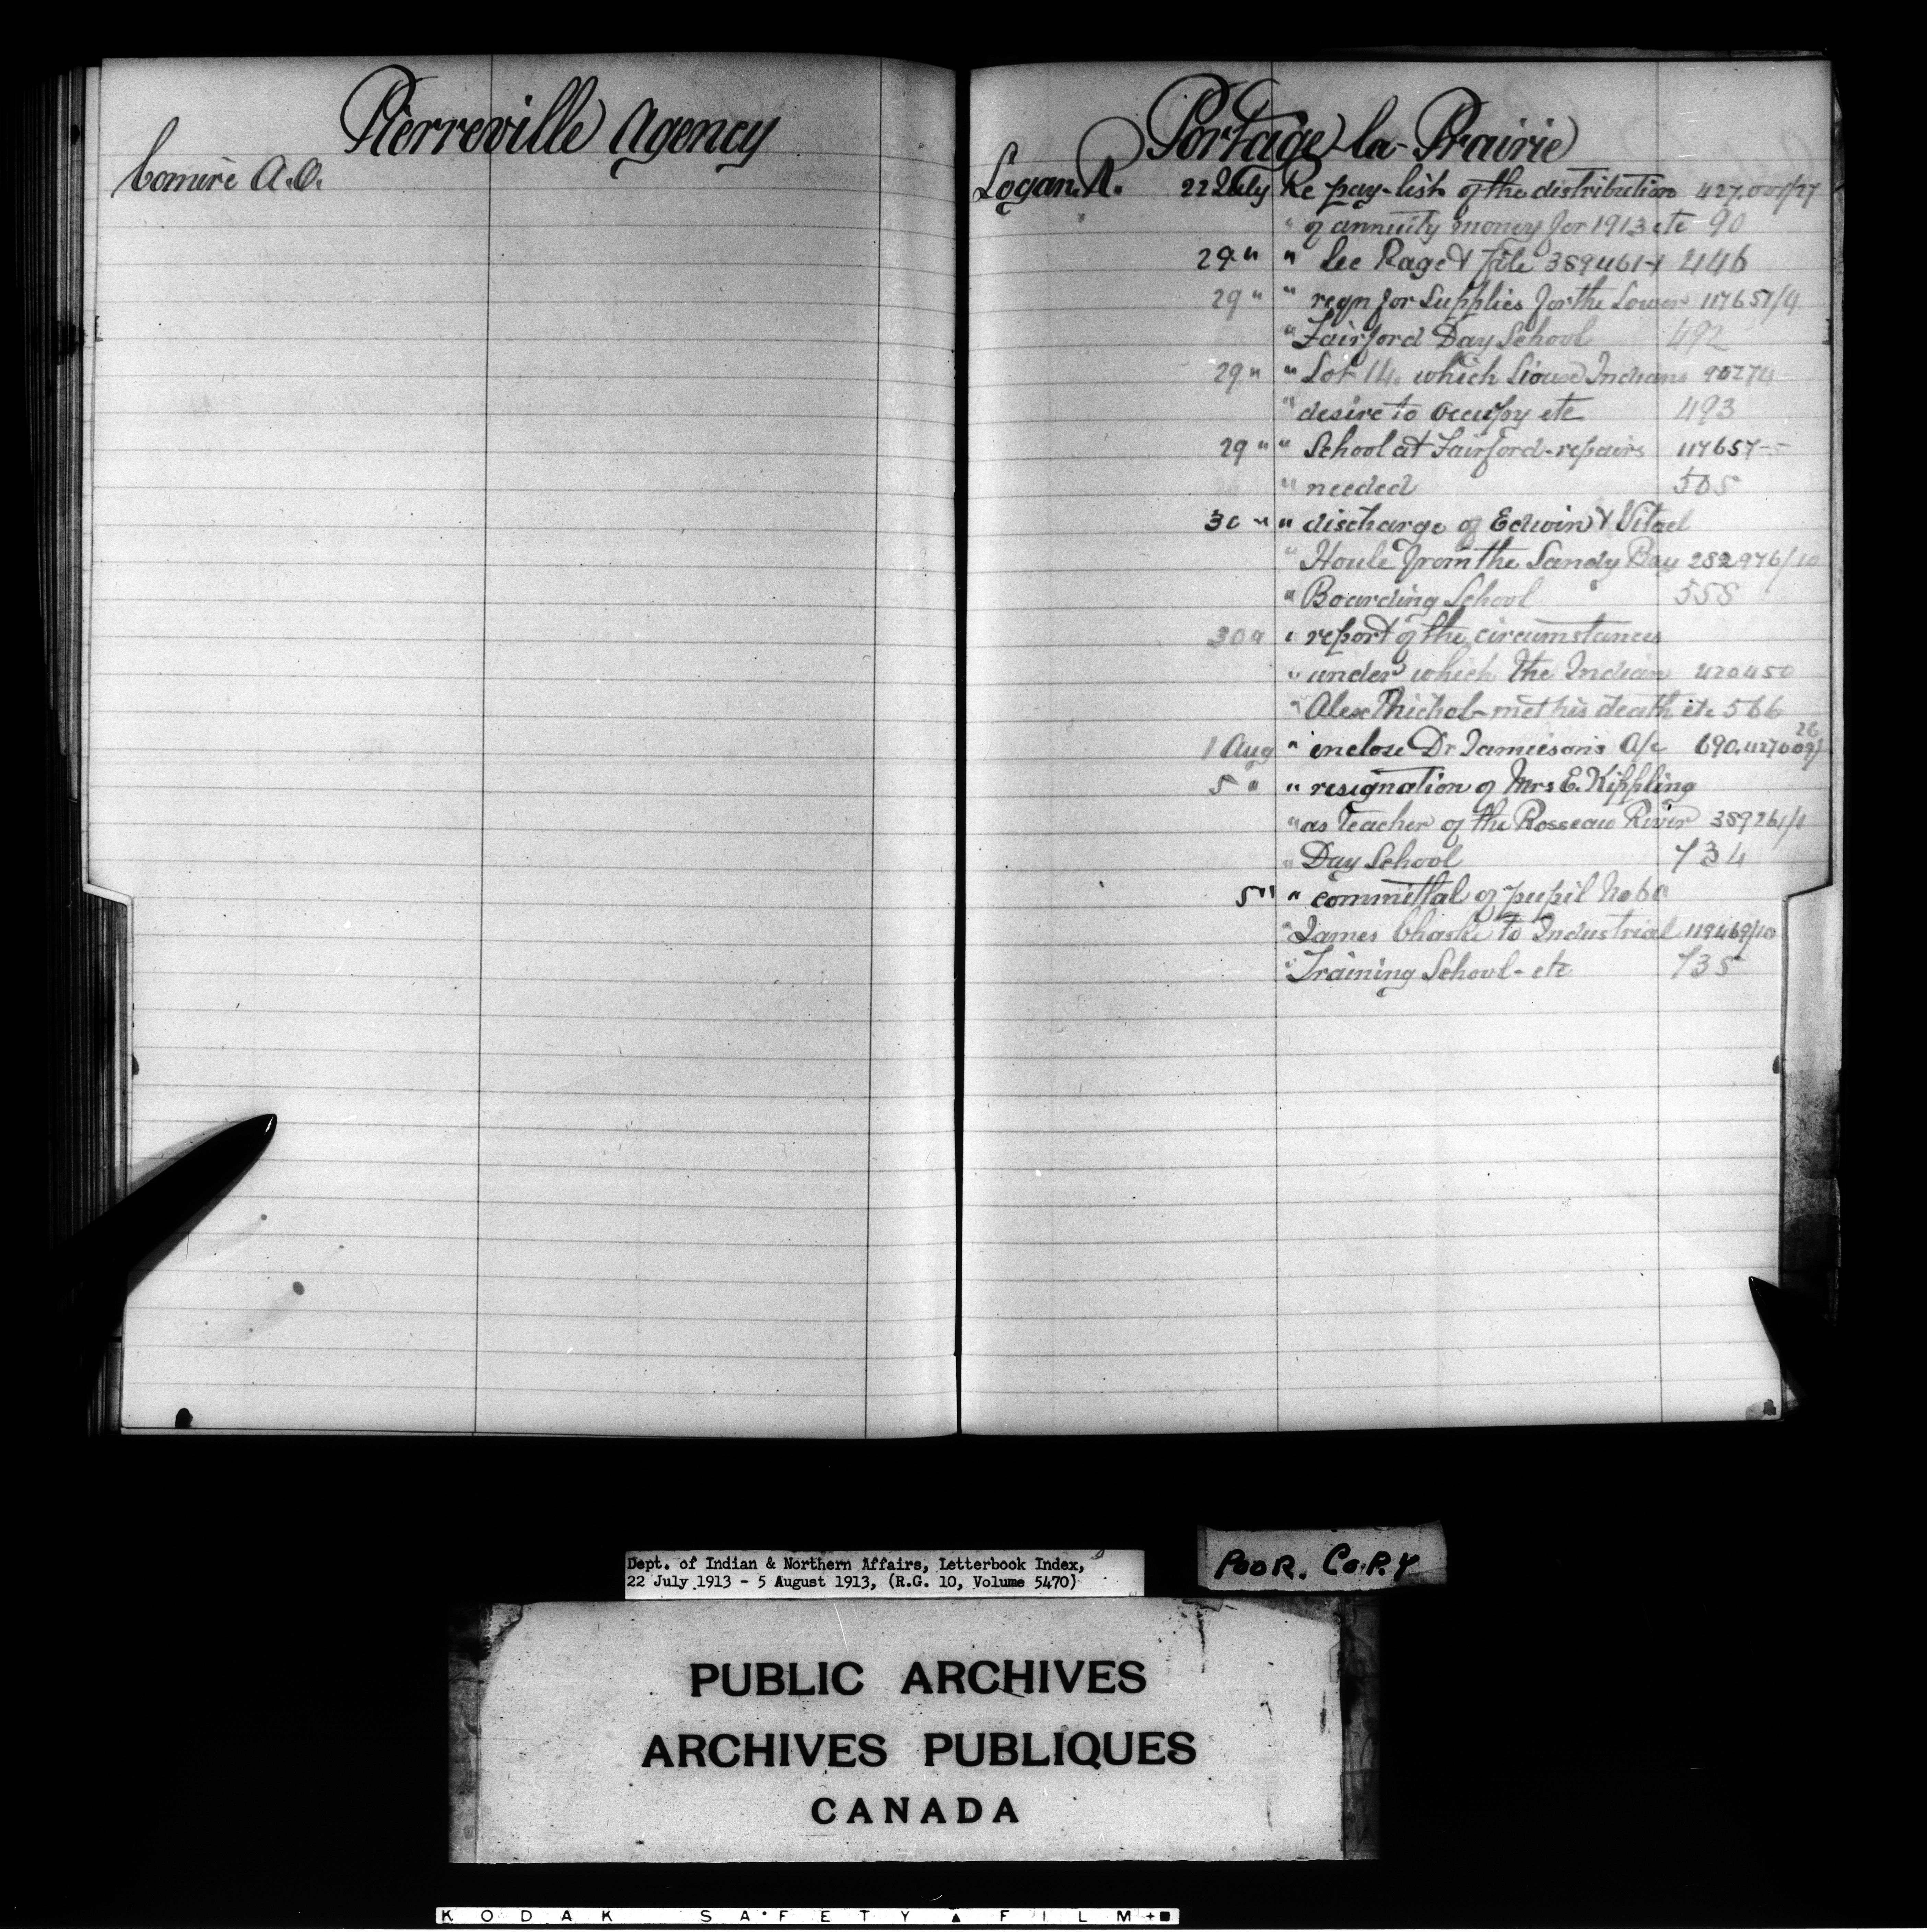 Pierreville Agency
Comiré A.O.
Portage-la-Prairie
Logan. R. 22 July Re pay-list of the distribution 427.001/27
" of annuity money for 1913 etc 90
29 " " See Page & file 389461-1 446
29 " " reqn for Supplies for the Lower 117657/4
" Fairford Day School 492
29 " " Lot 14. which Sioux Indians 90274
" desire to occupy etc 493
29 " " School at Fairford - repairs 117657-5
" needed 505
30 " " discharge of Edwin & Vitael
" Houle from the Sandy Bay 282976/10
" Boarding School 558
30 " " report of the circumstances
" under which the Indian 420450
" Alex met his death etc 566
1 Aug " inclose Dr Jamieson's A/c 690. 427009/26
5 " " resignation of Mrs E. Kippling
" as teacher of the Rosseau River 389261/1
" Day School 734
5 " " committal of pupil No 60
" James Chaske to Industrial 119469/10
" Training School - etc 735
Dept. of Indian & Northern Affairs, Letterbook Index,
22 July 1913 - 5 August 1913, (R.G. 10, Volume 5470)
POOR. COPY
PUBLIC ARCHIVES
ARCHIVES PUBLIQUES
CANADA
KODAK SAFETY FILM